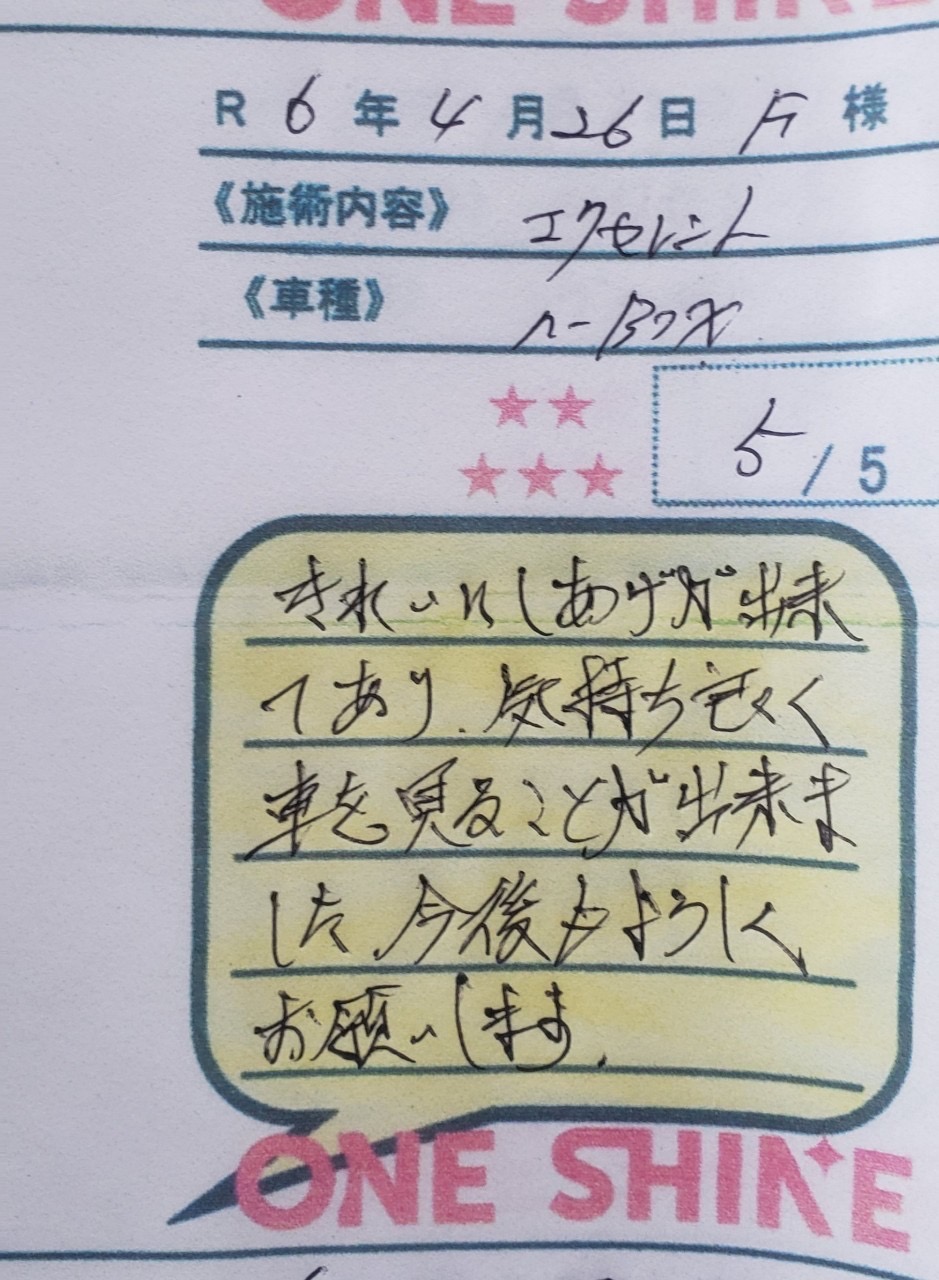 ONE SHINE
R 6 年 4 月 26 日 F 様
《施術内容》 エクセレント
《車種》 n-BOX
★★
5 / 5
★★★
きれいにしあげが出来
てあり、気持ち良く
車を見ることが出来ま
した、今後もよろしく
お願いします.
ONE SHINE